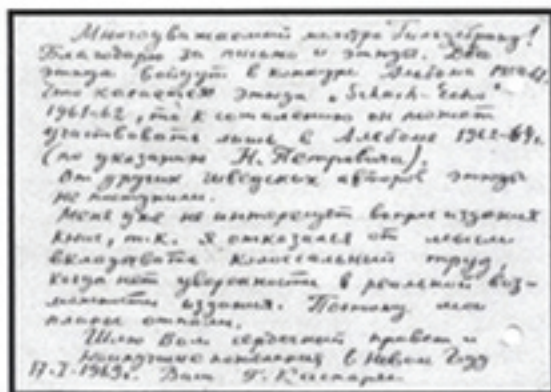 Многоуважаемый маэстро Гильдебранд!
Благодарю за письмо и этюды. Два
этюда войдут в конкурс Альбома
Что касается этюда „Schach-Echo"
1961-62, то к сожалению он может
участвовать лишь в Альбоме
(по указанию Н. Петровича).
От других шведских авторов этюды
не поступили.
Меня уже не интересует вопрос издания
книг, т.к. я отказался от мысли
вкладывать колоссальный труд,
когда нет уверенности в реальной воз-
можности издания. Поэтому мои
планы отпали.
Шлю Вам сердечный привет и
наилучшие пожелания в Новом Году
17.I.1963г. Ваш Г. Каспарян